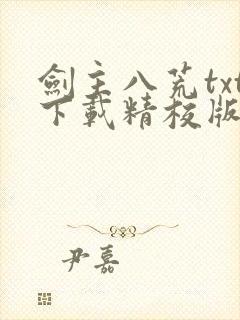 劍主八荒txt
下載精校版
尹嘉